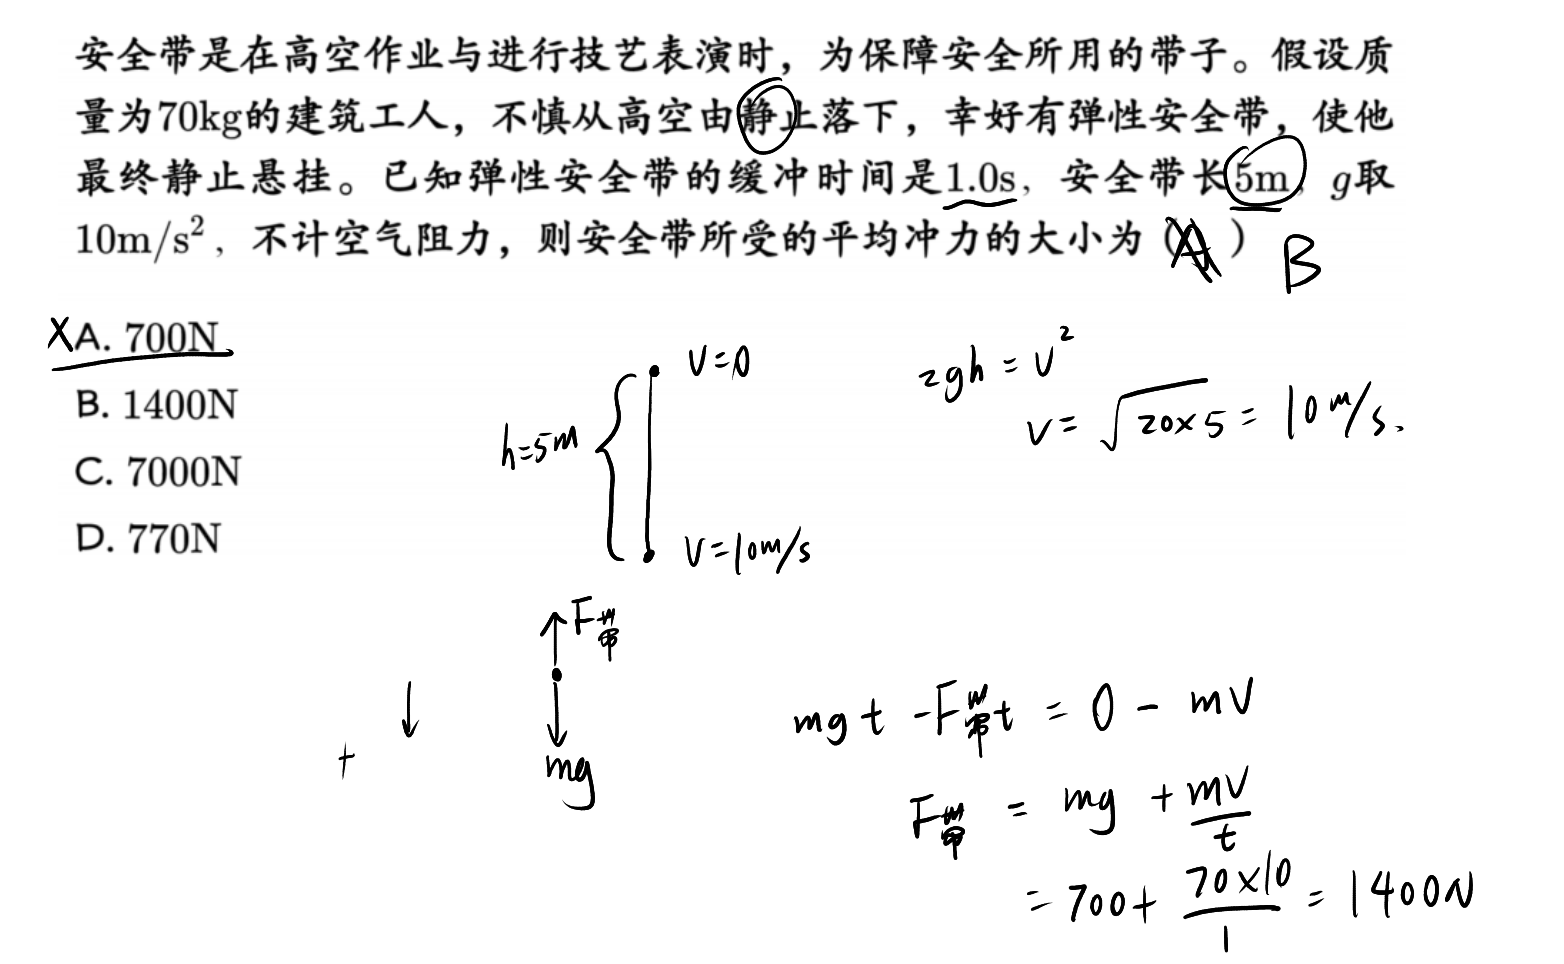 安全带是在高空作业与进行技艺表演时，为保障安全所用的带子。假设质
量为70kg的建筑工人，不慎从高空由静止落下，幸好有弹性安全带，使他
最终静止悬挂。已知弹性安全带的缓冲时间是1.0s，安全带长5m，g取
10m/s²，不计空气阻力，则安全带所受的平均冲力的大小为（A）B
XA. 700N
B. 1400N
C. 7000N
D. 770N
V=0
2gh = V²
V = √20×5 = 10m/s.
h=5m
V=10m/s
F带
mg
+
mgt - F带t = 0 - mV
F带 = mg + mV/t
= 700 + 70×10/1 = 1400N